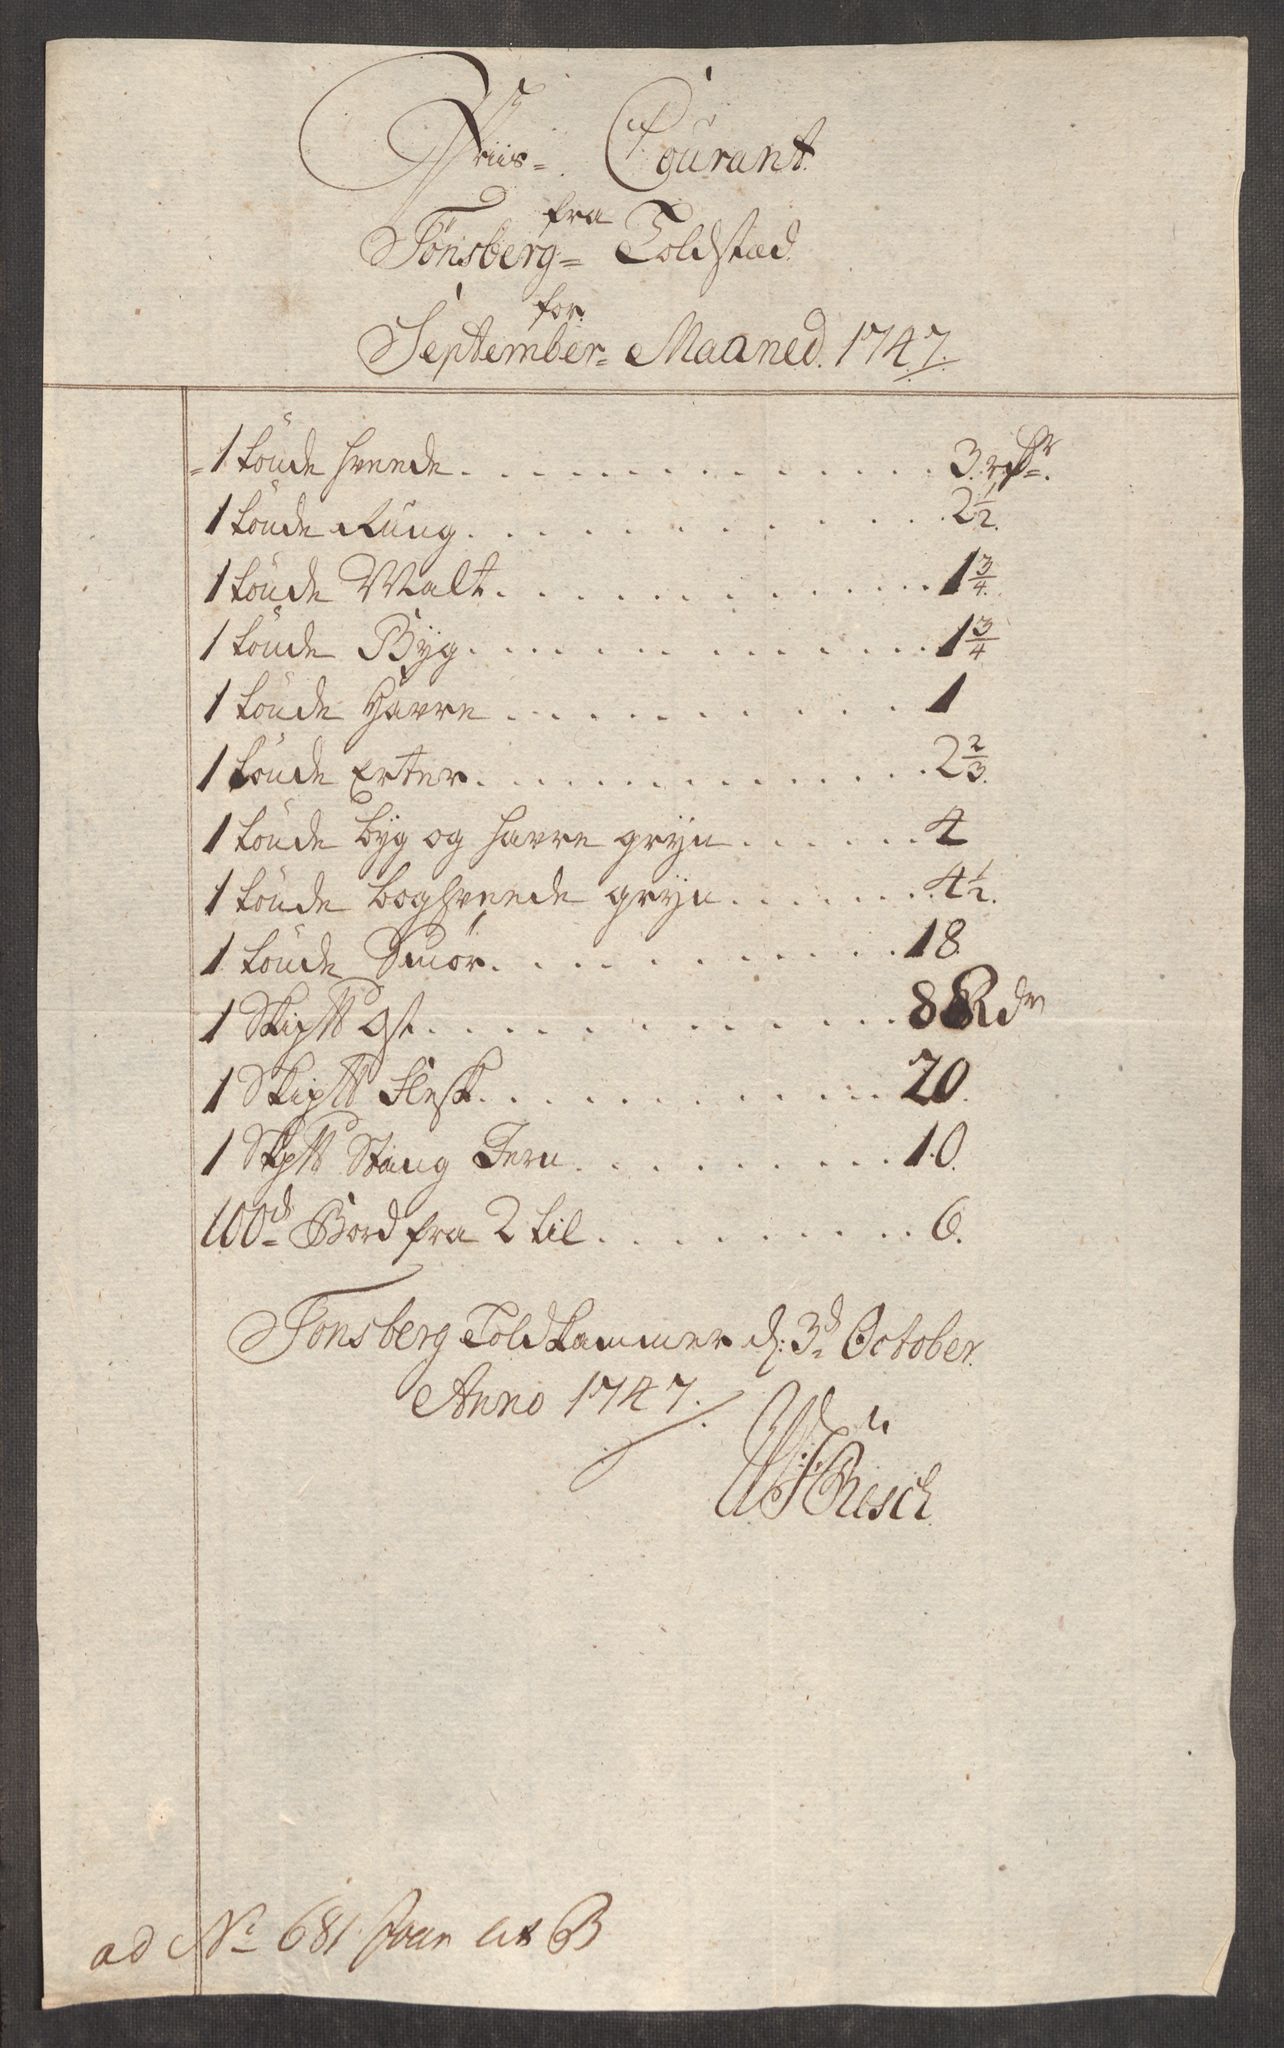 Priis- Courant
fra
Tönsberg= Toldstæd
for
September= Maaned. 1747.
1 tönde hveede . . . . . . . . . . . . 3.
1 tönde Rúug . . . . . . . . . . 2 1/2.
1 tönde Malt . . . . . . . . . . . 1 3/4.
1 tönde Byg . . . . . . . . . . . . 1 3/4
1 tönde Havre . . . . . . . . . . . 1
1 tönde Erter . . . . . . . . . . . . 2 2/3.
1 tönde byg og havre gryn . . . . . . 4
1 tönde boghveede gryn . . . . . . 4 1/2.
1 tönde Smör . . . . . . . . . . . 18.
1 Skip℔ Ost . . . . . . . . . . . . . 8 Rdr
1 Skip℔ Flesk . . . . . . . . . . . 20.
1 Skp℔ Stang Jern . . . . . . . . . 10.
100d Bord fra 2 til . . . . . . . . . 6.
Tönsberg Toldkammer d: 3d October.
Anno 1747.
Rüsch
ad No 681 Lit B